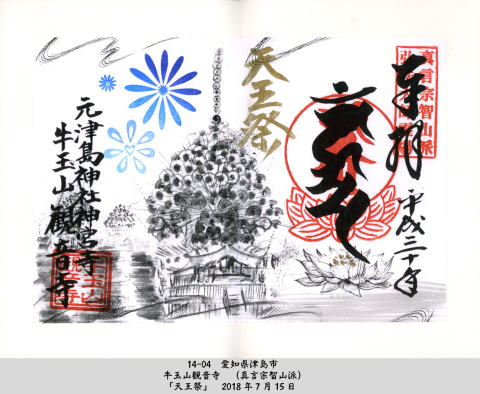 奉拝
平成三十年
真言宗智山派
天王祭
元津島神社神宮寺
牛玉山観音寺
14-04 愛知県津島市
牛玉山観音寺 (真言宗智山派)
「天王祭」 2018年7月15日